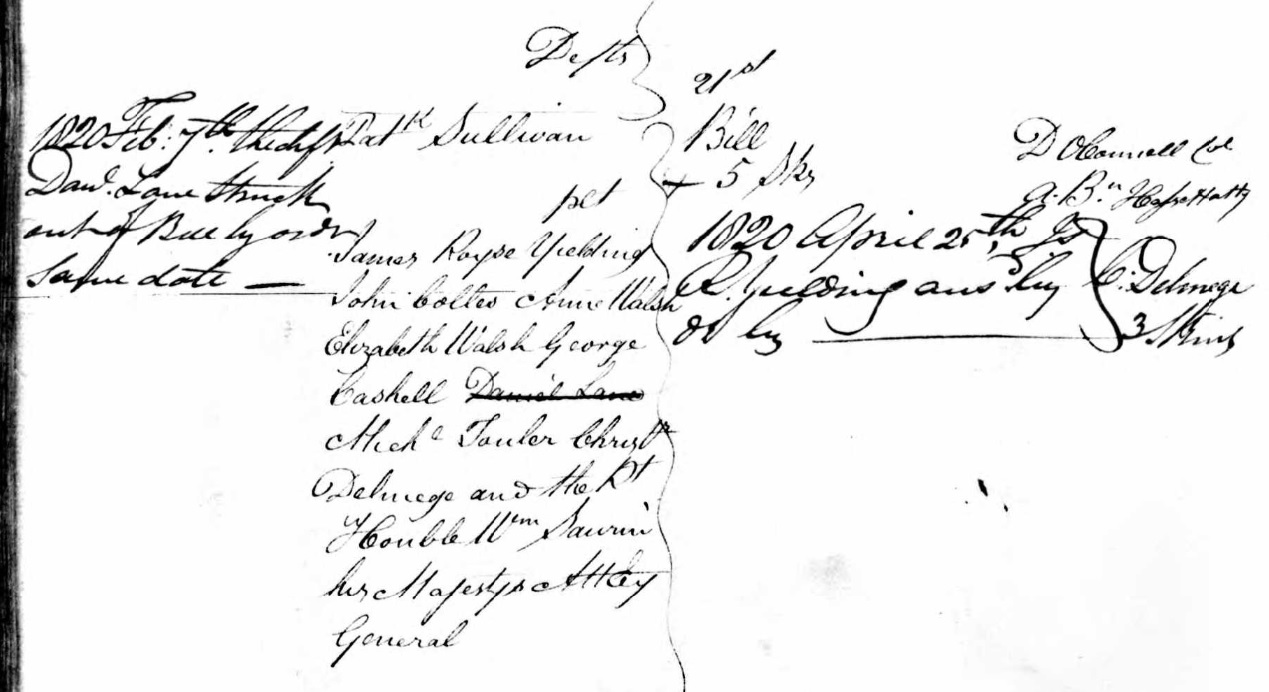 Defts
1820 Feb: 7th. the deft
Danl. Lane Struck
out of Bill by order
same date —
Patk Sullivan
plt
James Royse Yielding
John Colles Anne Walsh
Elizabeth Walsh George
Cashell Daniel Lane
Michl Fouler Christr
Delmege and the Rt
Honble Wm Saurin
his Majestys Atty
General
21st
Bill
5 Sks
1820 April 25th Js
R. Yielding ans by
D OConnell
C: Delmege
3 Skins